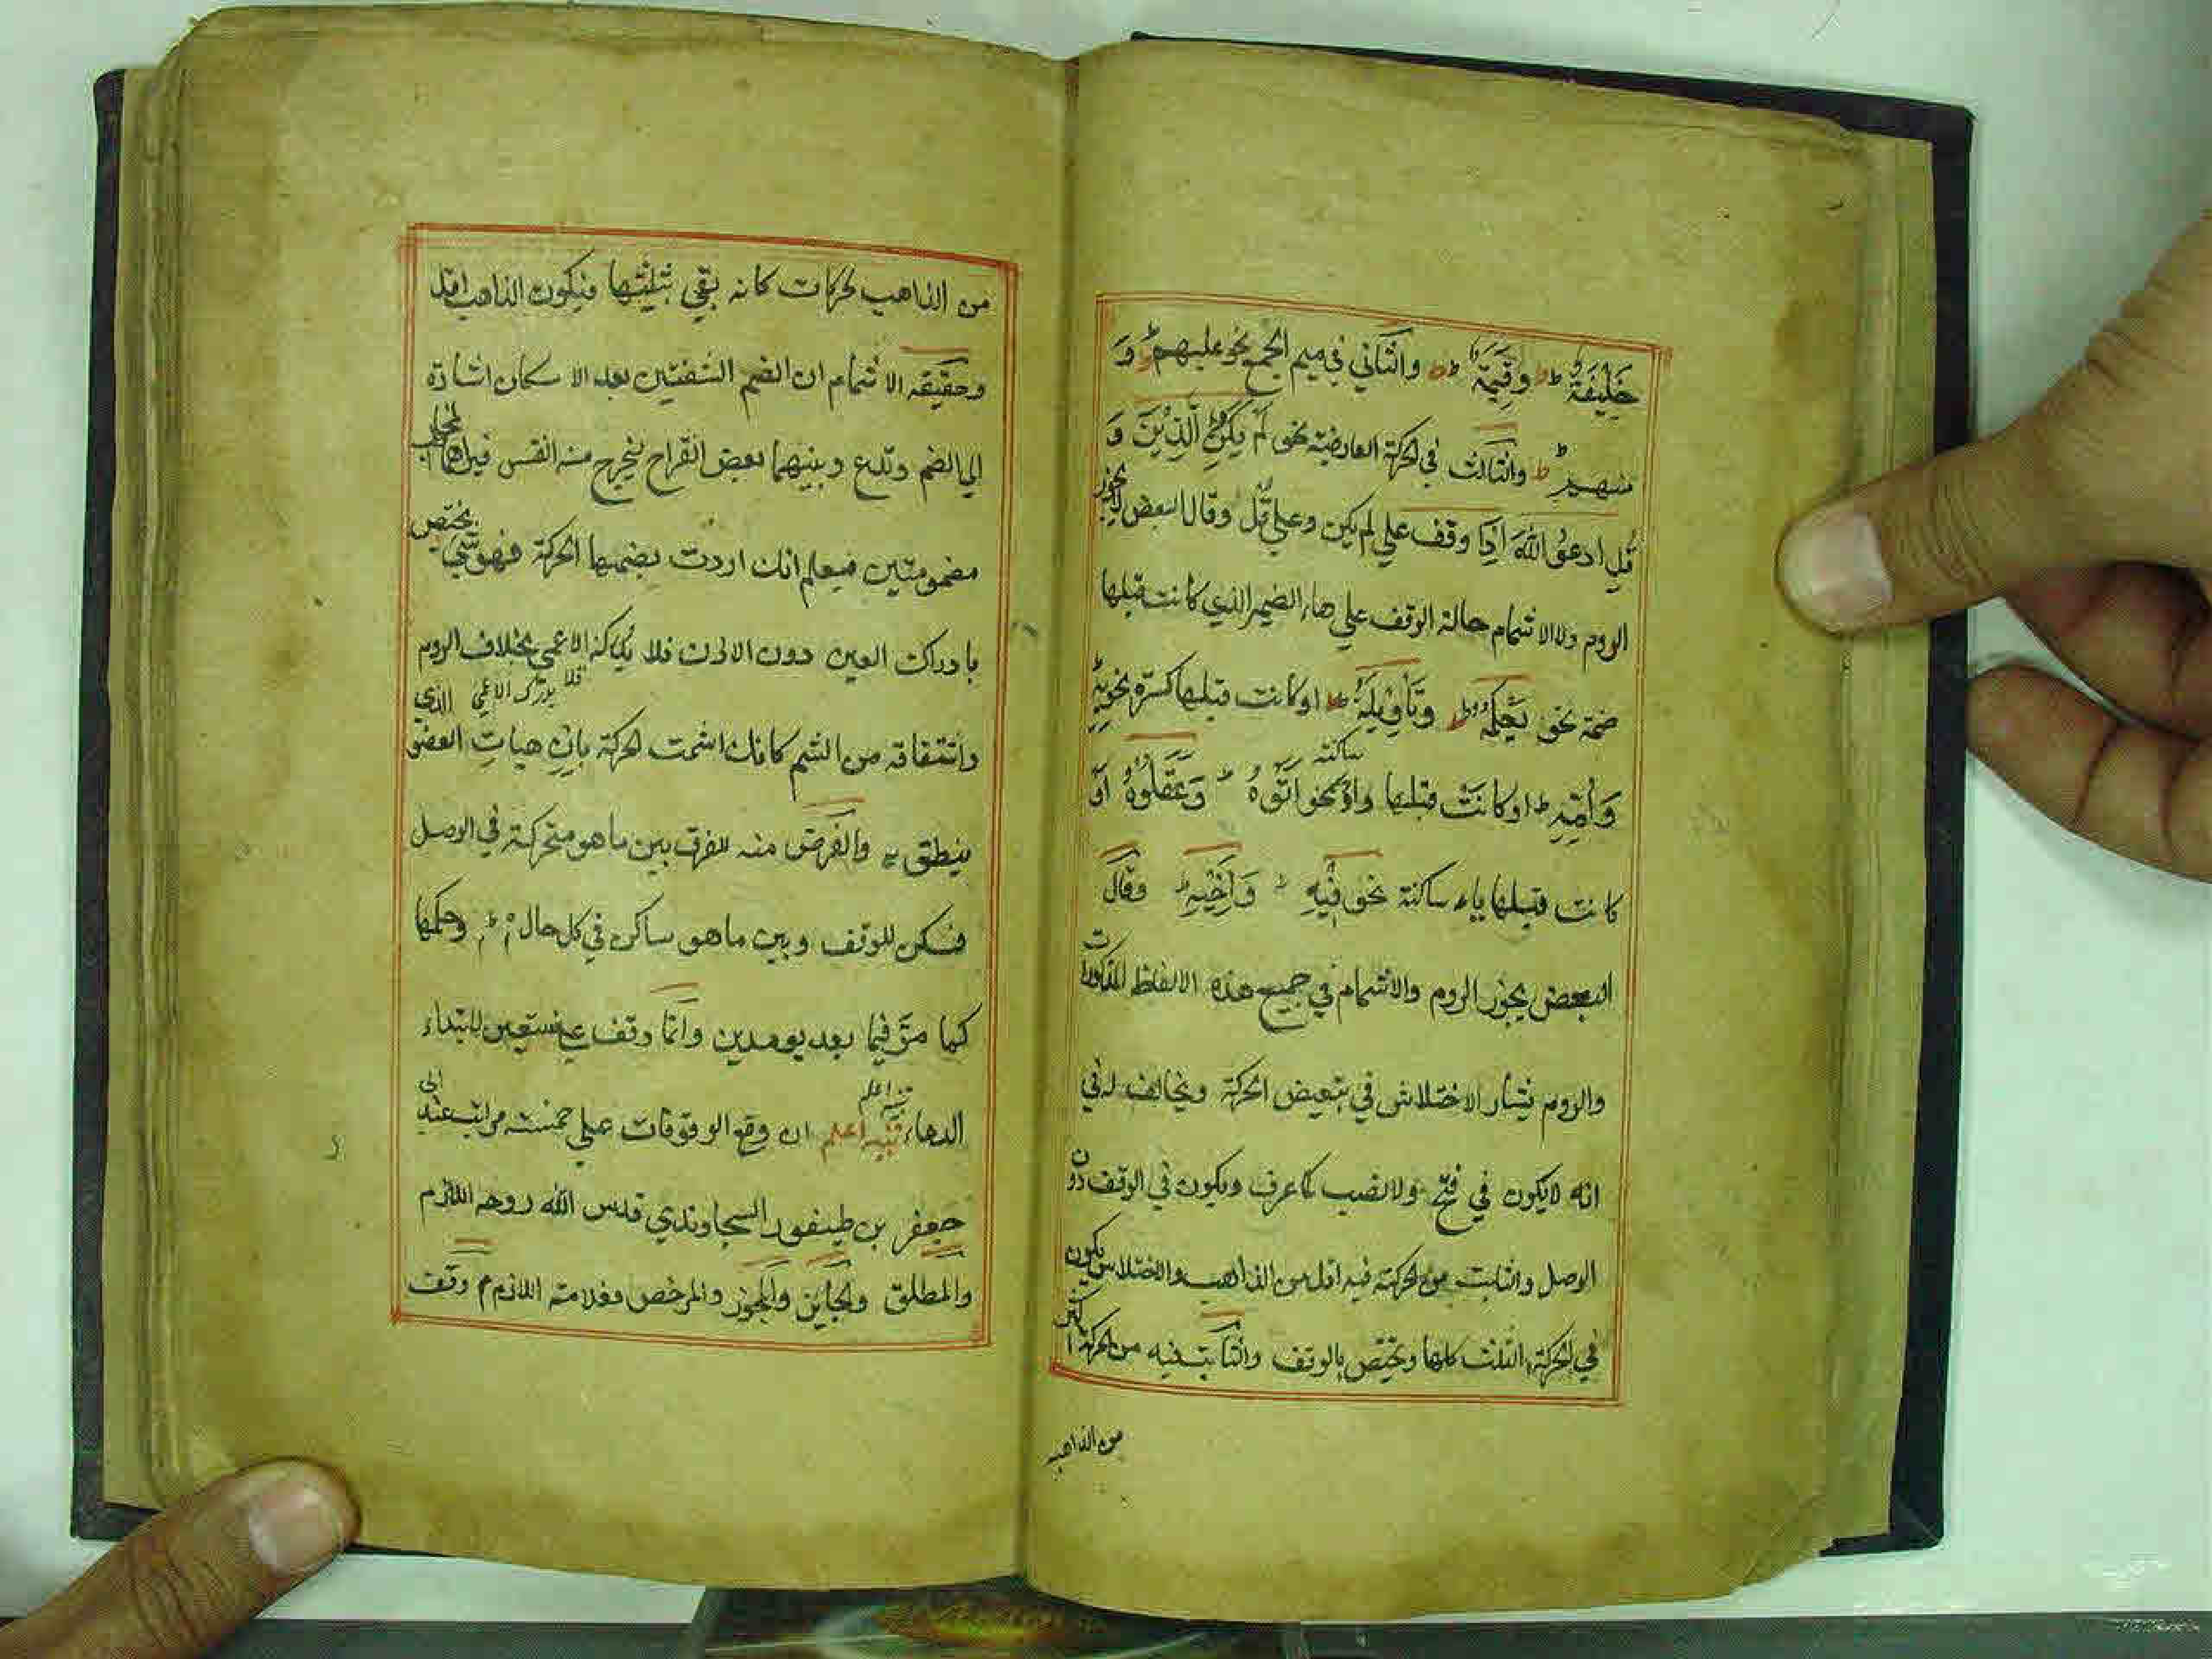 خَلِيْفَةْ ط وقَيِّمَةْ ط والثاني في ميم الجمع نحو عليهم ط وَ
منهم ط والثالث في الحركة العارضية نحو لَمْ يَكُنِ الَّذِيْنَ وَ
قُلِ ادعوُ اللهَ اذا وقف علي لم يكن وعلي قُلْ وقال البعض لا يجوز
الروم ولا الاشمام حالة الوقف علي هاء الضمير الذي كانت قبلها
ضمة نحو وتَأوِيْلُهُ ط او كانت قبلها كسرة نحو بِهِ
وَاُمِّهِ ط او كانَتْ قبلها واوٌ ساكنة نحو وَعَقَلُوْهُ اَوْ
كانت قبلها ياء ساكنة نحو فِيْهِ ط وَاَخِيْهِ ط وقال
البعض يجوز الروم والاشمام في جميع هذه الالفاظ المذكورات
والروم الاختلاس في تبعيض الحركة ويخالف له في
انه لايكون في فتح ولا نصب كما عرف ويكون في الوقف دون
الوصل والثابت من الحركة فيه اقل من الذاهب والاختلاس يكون
في الحركة الثلث كلها ويختص بالوقف والثابت فيه من الحركة اكثر
من الذاهب
من الذاهب لحركات كانه بقي ثلثيها فيكون الذاهب اقل
وحقيقه الاشمام ان الضم الشفتين بعد الاسكان اشارة
الي الضم وتدع وبينهما بعض انفراج ليخرج منه النفس فيراهما المخاطب
مضمومتين فيعلم انك اردت بضمها الحركة فهو شيء يختص
بادراك العين دون الاذن فلا الاعمي بخلاف الروم
فلا يدرك الاعمي الذي
واشتقاقه من الشم كانك اشمت الحركة بان هيات العضو
ينطق به والغرض منه للفرق بين ما هو متحركة في الوصل
فسكن للوقف وبين ما هو ساكن في كل حال وحكمها
كما مرّ فيما بعد يومدين وانّما وقف علي نستعين لابتداء
الدعاء تنبيه اعلم ان وقع الوقوفات علي خمسة مراتب عند ابي
جعفر بن طيفور السجاوندي قدس الله روحه اللازم
والمطلق والجايز والمجوز والمرخص فعلامة اللازم م وقف